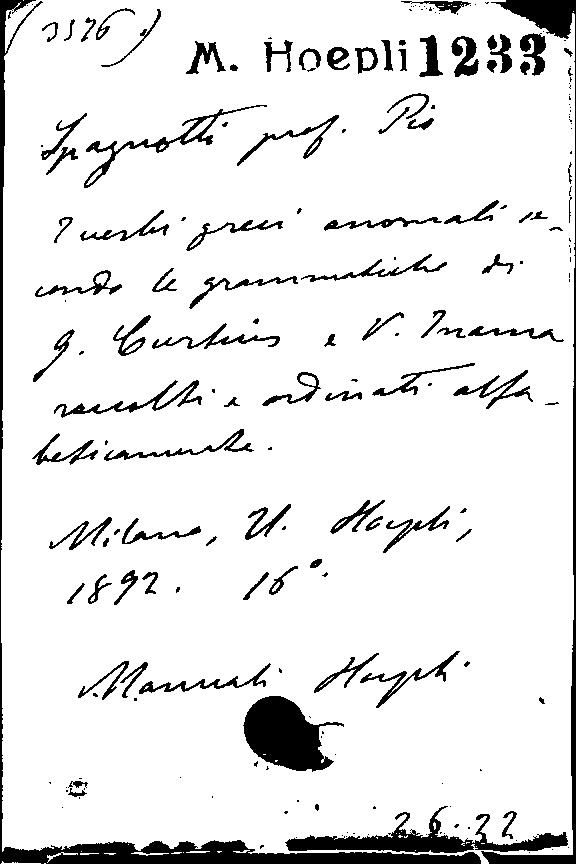 (3576.)
M. Hoepli 1233
Spagnotti prof. Pio
I verbi greci anomali se-
condo le grammatiche di
G. Curtius e V. Inama
raccolti e ordinati alfa-
beticamente.
Milano, U. Hoepli,
1892. 16°.
Manuali Hoepli
26.22